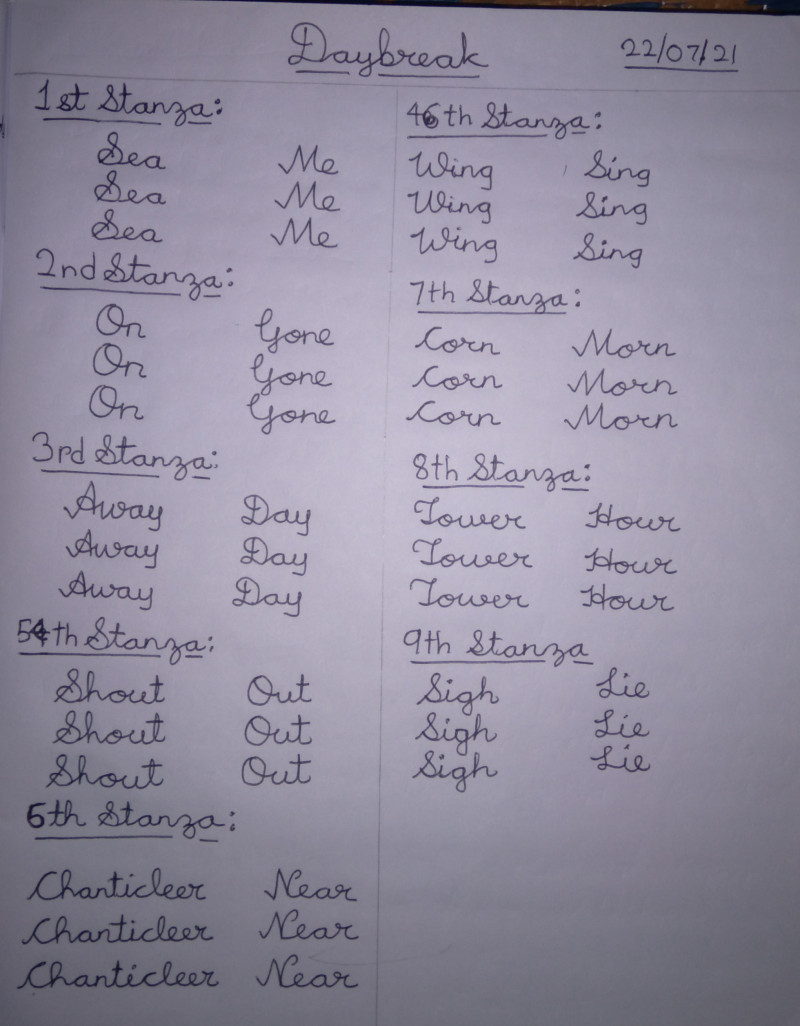 Daybreak 22/07/21
1st Stanza:
Sea Me
Sea Me
Sea Me
2nd Stanza:
On Gone
On Gone
On Gone
3rd Stanza:
Away Day
Away Day
Away Day
54th Stanza:
Shout Out
Shout Out
Shout Out
6th Stanza:
Chanticleer Near
Chanticleer Near
Chanticleer Near
46th Stanza:
Wing Sing
Wing Sing
Wing Sing
7th Stanza:
Corn Morn
Corn Morn
Corn Morn
8th Stanza:
Tower Hour
Tower Hour
Tower Hour
9th Stanza
Sigh Lie
Sigh Lie
Sigh Lie